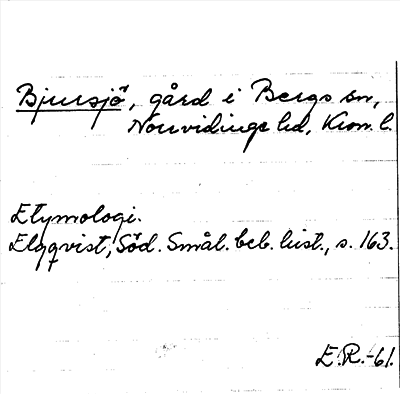 Bjursjö, gård i Bergs sn,
Norrvidinge hd, Kron. l.
Etymologi.
Elgqvist, Söd. Smål. beb. hist., s. 163.
E.R.-61.